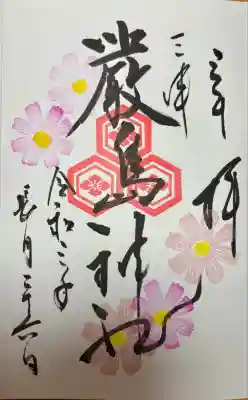 奉拝
三津
嚴島神社
令和二年
長月二十六日